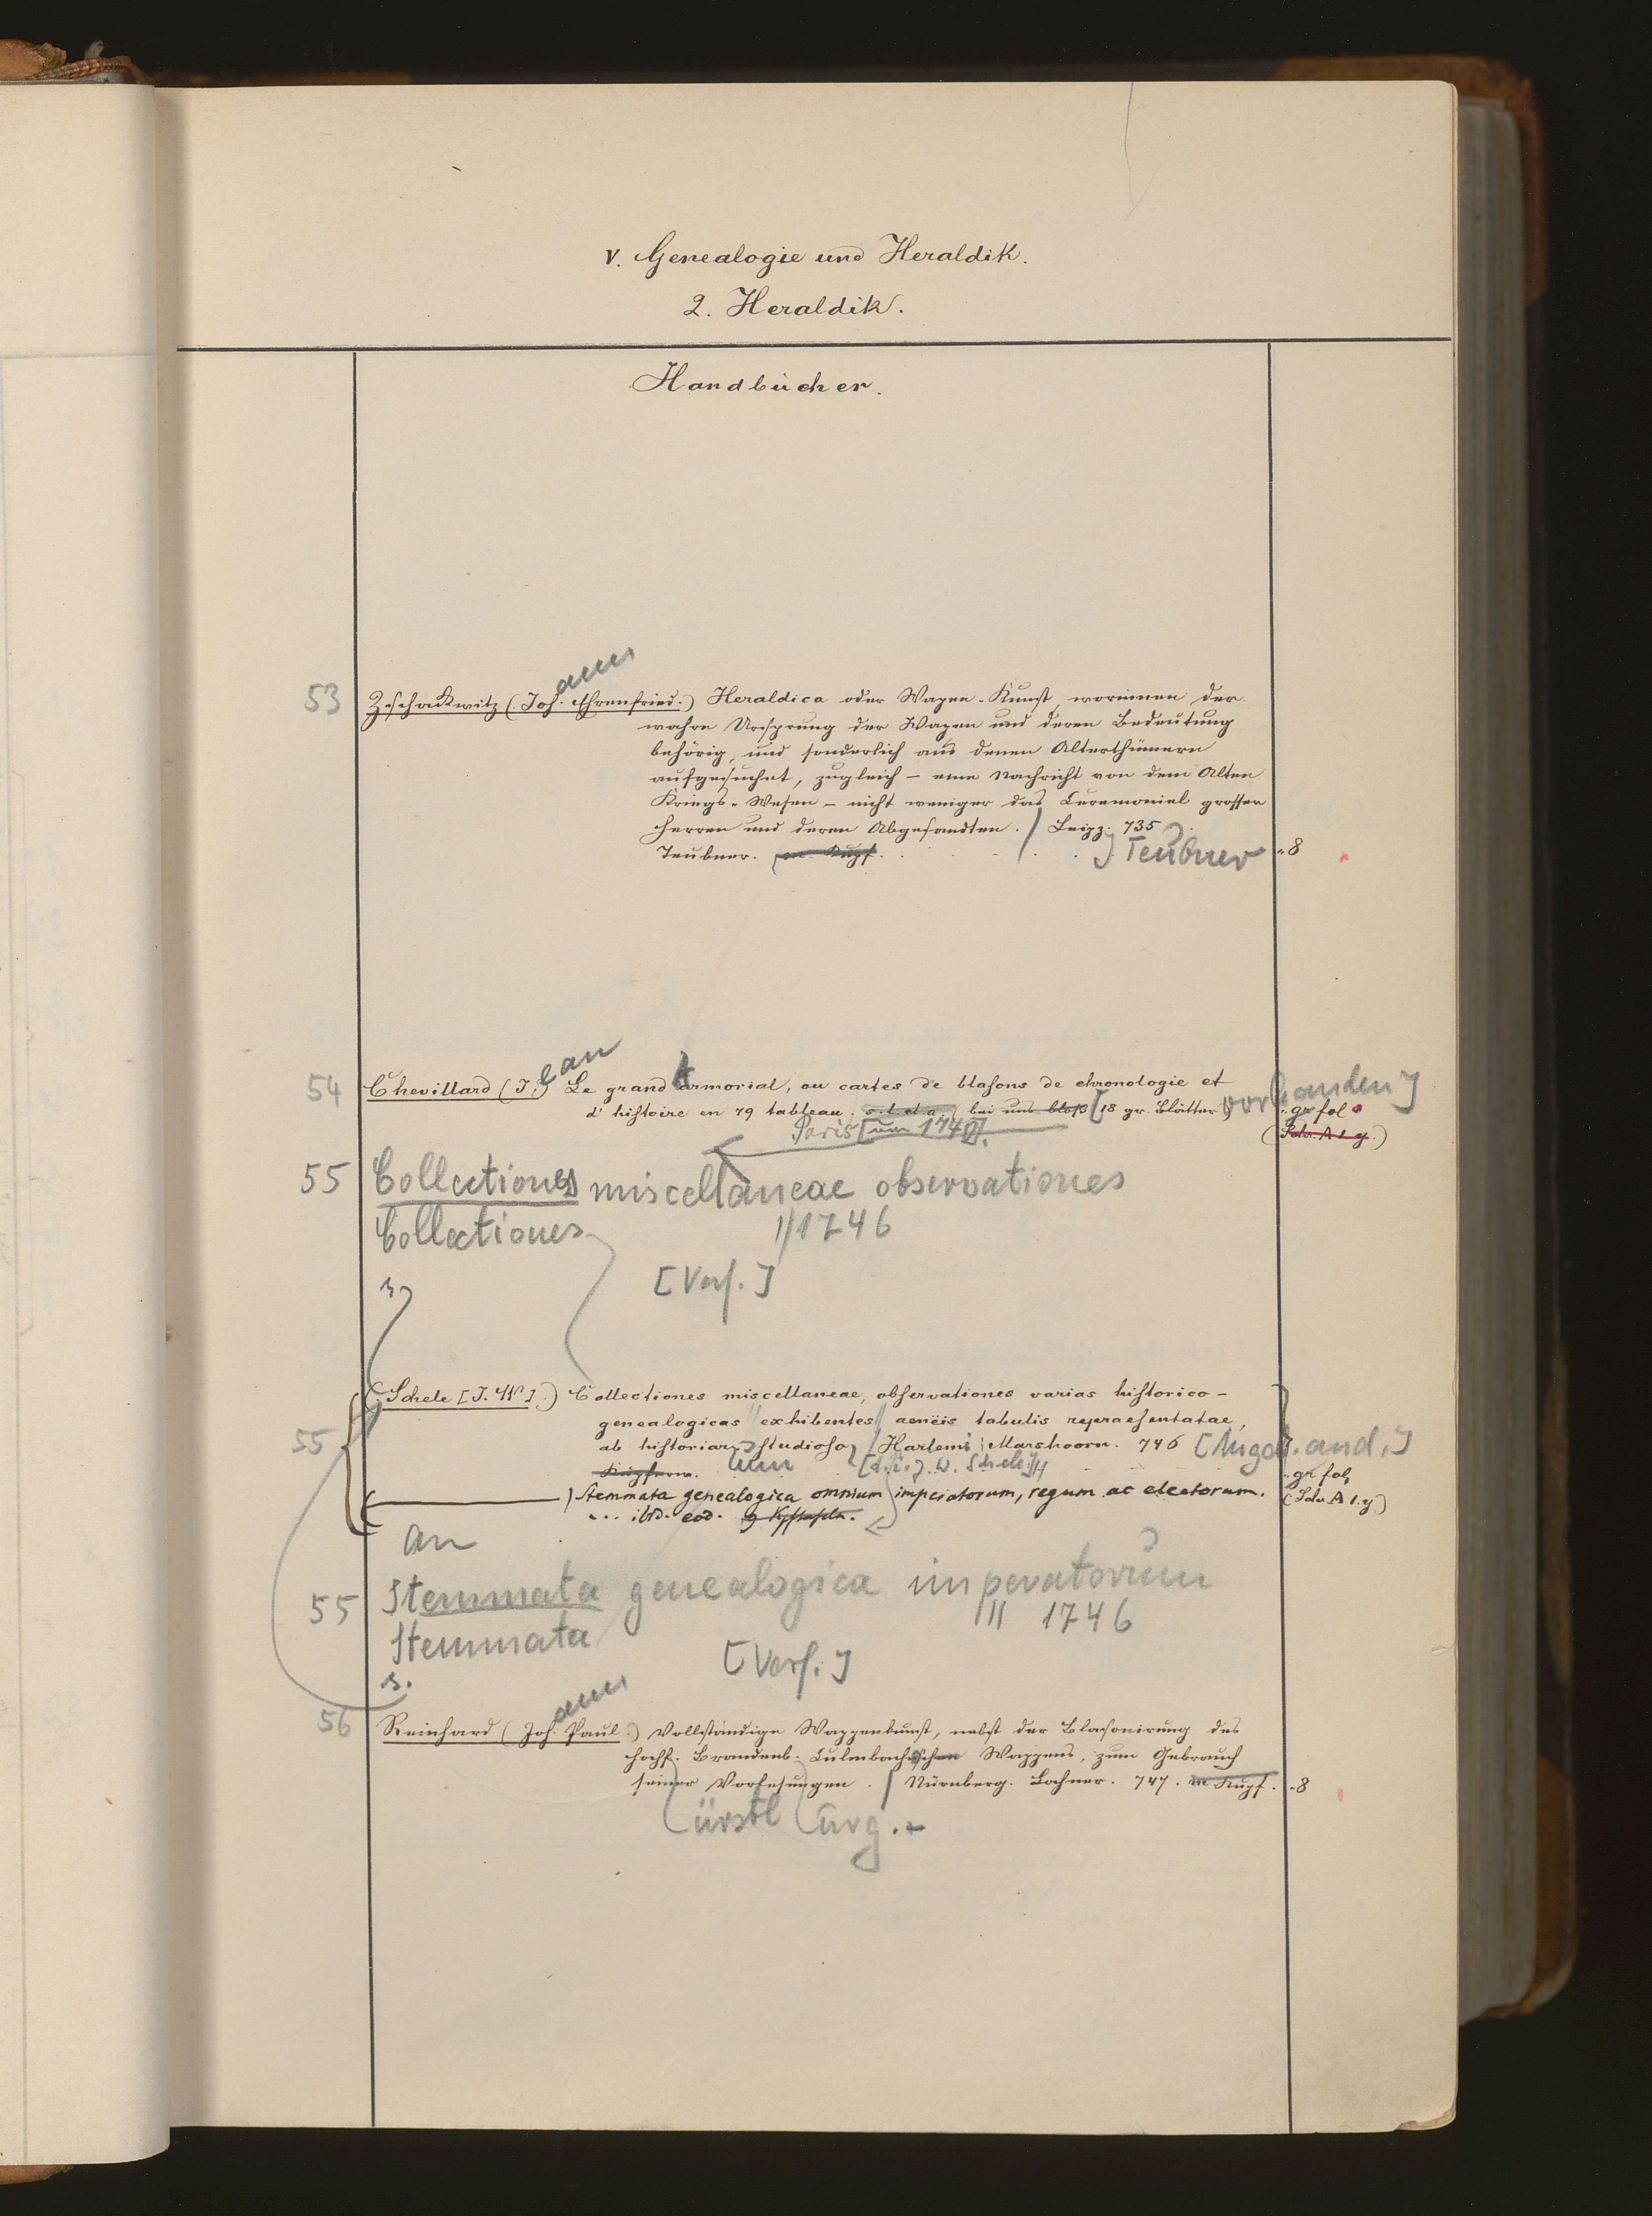 V. Genealogie und Heraldik.
2. Heraldik.
Handbücher.
ann
53 Zschackwitz (Joh. Ehrenfried.) Heraldica oder Wapen-Kunst, worinnen der
wahre Ursprung der Wapen und deren Bedeutung
behörig, und sonderlich aus denen Alterthümern
aufgesuchet, zugleich – eine Nachricht von dem Alten
Kriegs-Wesen – nicht weniger das Ceremoniel grosser
Herren und deren Abgesandten. / Leipz. 735.
Teubner. m. Kupf. . . . . . Teubner 8
ean
54 Chevillard (J.) Le grand Armorial, ou cartes de blasons de chronologie et
d'histoire en 79 tableau. s. l. et a. (bei uns bloß [18 gr. Blätter) vorhanden] gr fol
Paris [um 1740]. (Schr. A 1. y.)
55 Collectiones miscellaneae observationes
Collectiones // 1746
s. [Verf.]
(Schele [J. W].) Collectiones miscellaneae, observationes varias historico-
genealogicas // exhibentes // aenëis tabulis repraesentatae,
55 ab historiar. studioso / Harlemi Marshoorn. 746 [Angeb. and.]
Kupfern. um [d. i. J. W. Schele] gr fol,
) Stemmata genealogica omnium imperatorum, regum ac electorum. (Schr A 1. y)
... ibd. eod. 9 Kpftafeln.
an
55 Stemmata genealogica imperatorum
Stemmata /// 1746
s. [Verf.]
ann
56 Reinhard (Joh. Paul.) Vollständige Wappenkunst, nebst der Blasonirung des
Hochf. Brandenb. Culmbachischen Wappens, zum Gebrauch
seiner Vorlesungen. / Nürnberg. Lochner. 747. m Kupf. 8
ürstl urg.-